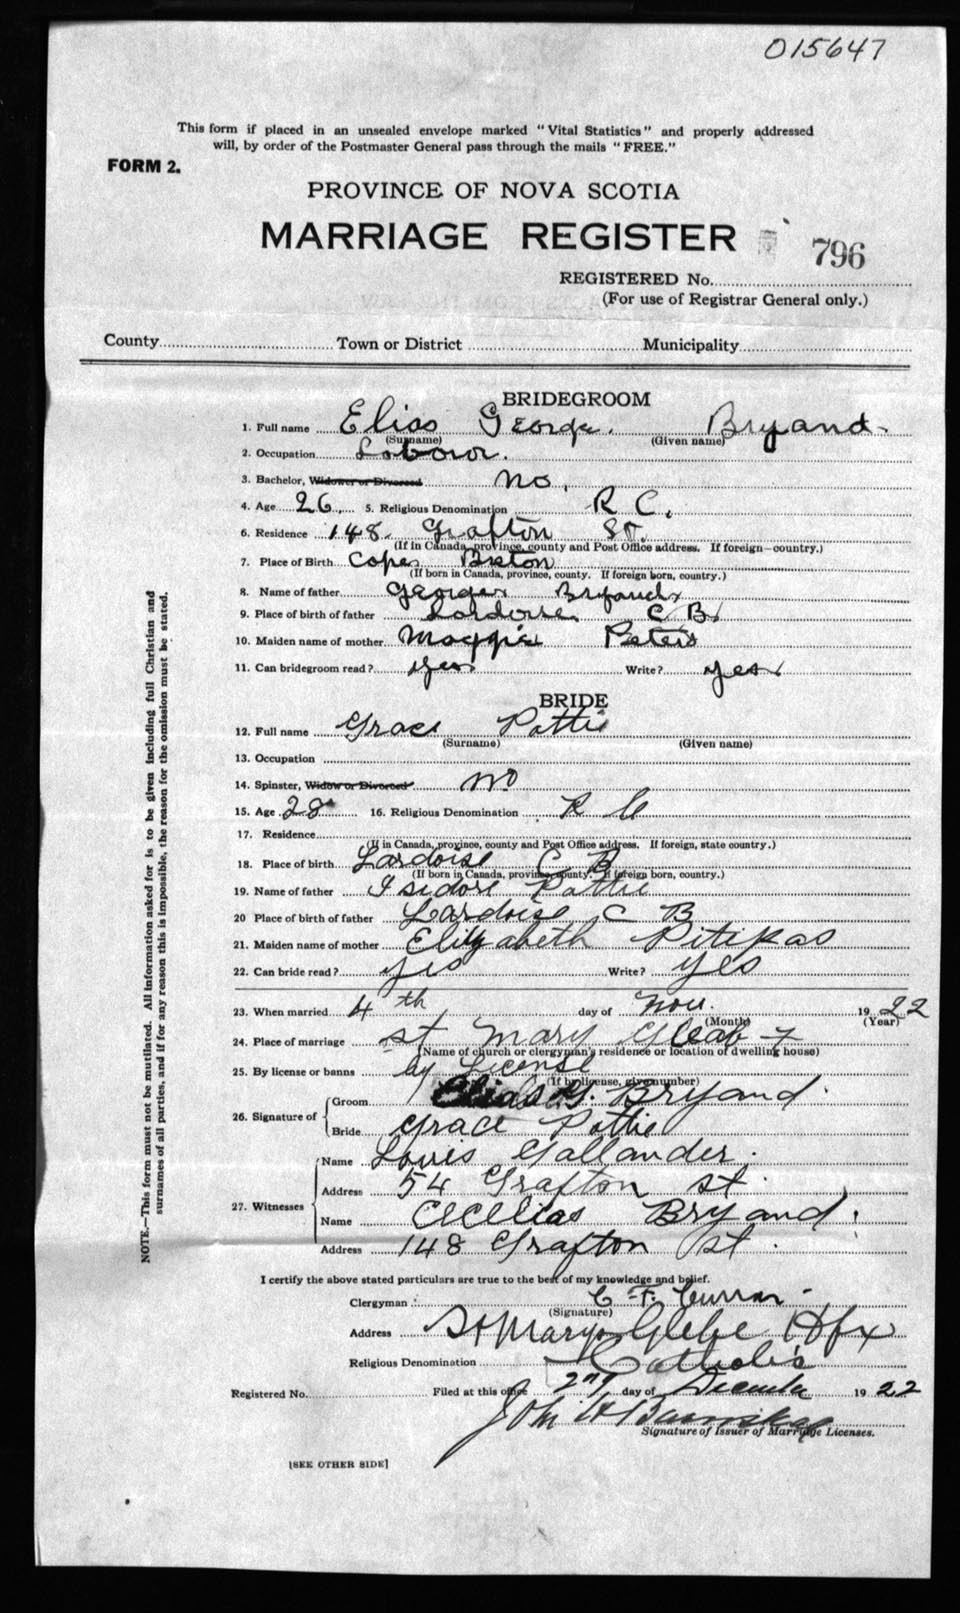 015647
This form if placed in an unsealed envelope marked "Vital Statistics" and properly addressed
will, by order of the Postmaster General pass through the mails "FREE."
FORM 2.
PROVINCE OF NOVA SCOTIA
MARRIAGE REGISTER
796
REGISTERED No.
(For use of Registrar General only.)
County Town or District Municipality
BRIDEGROOM
1. Full name Elias George Bryand
(Surname) (Given name)
2. Occupation Labour.
3. Bachelor, Widower or Divorced no.
4. Age 26 5. Religious Denomination R C.
6. Residence 148 Grafton St.
(If in Canada, province, county and Post Office address. If foreign—country.)
7. Place of Birth Cape Breton
(If born in Canada, province, county. If foreign born, country.)
8. Name of father George Bryand
9. Place of birth of father Lordoise C B
10. Maiden name of mother Maggie Peters
11. Can bridegroom read? yes Write? yes
BRIDE
12. Full name Grace Pottie
(Surname) (Given name)
13. Occupation
14. Spinster, Widow or Divorced no
15. Age 28 16. Religious Denomination R C
17. Residence
(If in Canada, province, county and Post Office address. If foreign, state country.)
18. Place of birth Lardoise C B
(If born in Canada, province, county. If foreign born, country.)
19. Name of father Isidore Pottie
20 Place of birth of father Lardoise C B
21. Maiden name of mother Elizabeth Pitipas
22. Can bride read? yes Write? yes
23. When married 4th day of Nov. 1922
(Month) (Year)
24. Place of marriage st Mary Gleab
(Name of church or clergyman's residence or location of dwelling house)
25. By license or banns by License
(If by license, give number)
26. Signature of Groom Elias G. Bryand
Bride Grace Pottie
27. Witnesses Name Louis Gallander.
Address 54 Grafton st.
Name Cecelias Bryand.
Address 148 Grafton st.
I certify the above stated particulars are true to the best of my knowledge and belief.
Clergyman C. F. Curran
(Signature)
Address St Marys Glebe Hfx
Religious Denomination Catholic
Registered No. Filed at this office 2nd day of December 1922
John
Signature of Issuer of Marriage Licenses.
[SEE OTHER SIDE]
NOTE.—This form must not be mutilated. All information asked for is to be given including full Christian and
surnames of all parties, and if for any reason this is impossible, the reason for the omission must be stated.